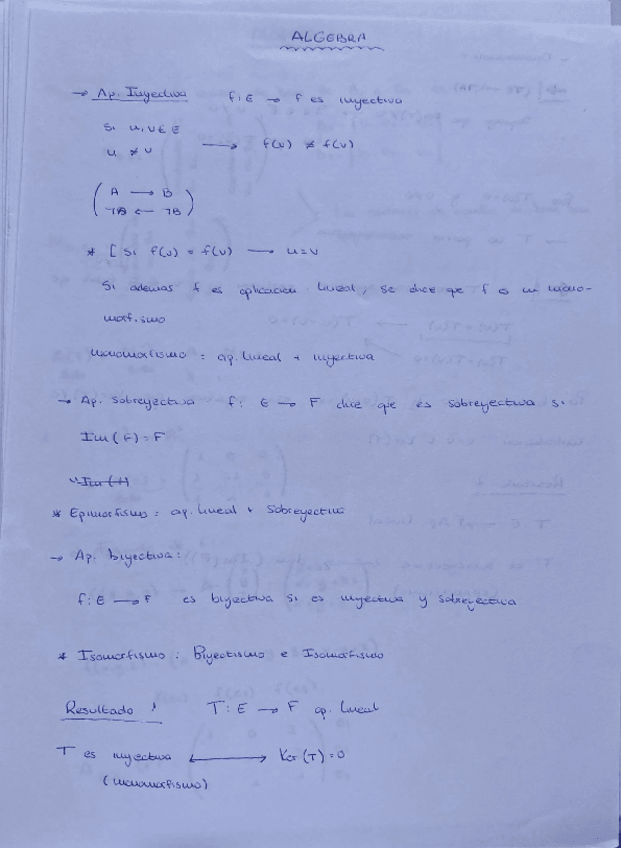 ALGEBRA
→ Ap. Inyectiva f: E → F es inyectiva
Si u, v ∈ E
u ≠ v → f(u) ≠ f(v)
( A → B
¬A ← ¬B )
* [ Si f(u) = f(v) → u = v
Si ademas f es aplicacion lineal, se dice que f es un mono-
morfismo
Monomorfismo = ap. lineal + inyectiva
→ Ap. sobreyectiva f: E → F dice que es sobreyectiva si
Im(f) = F
Im(f)
* Epimorfismo = ap. lineal + sobreyectiva
→ Ap. biyectiva:
f: E → F es biyectiva si es inyectiva y sobreyectiva
* Isomorfismo : Biyectismo e Isomorfismo
Resultado 1 T: E → F ap. lineal
T es inyectiva ←→ Ker(T) = 0
(monomorfismo)